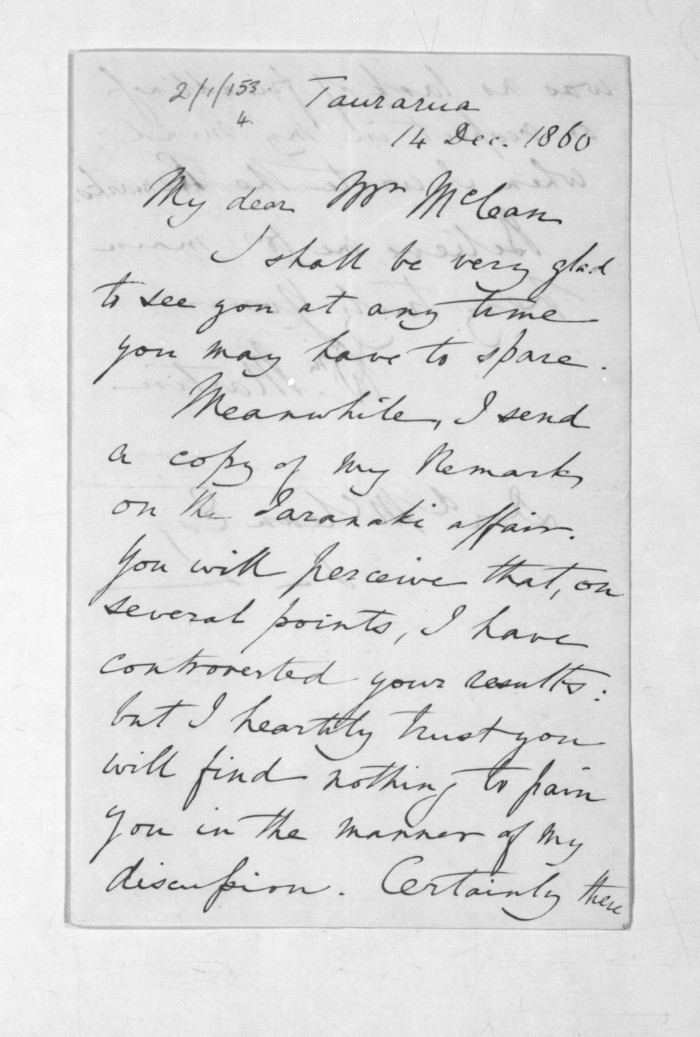 2/1/153
4.
Taurarua
14 Dec. 1860
My dear Mr McLean
I shall be very glad
to see you at any time
you may have to spare.
Meanwhile, I send
a copy of my Remarks
on the Taranaki affair.
You will perceive that, on
several points, I have
controverted your results:
but I heartily trust you
will find nothing to pain
you in the manner of my
discussion. Certainly there